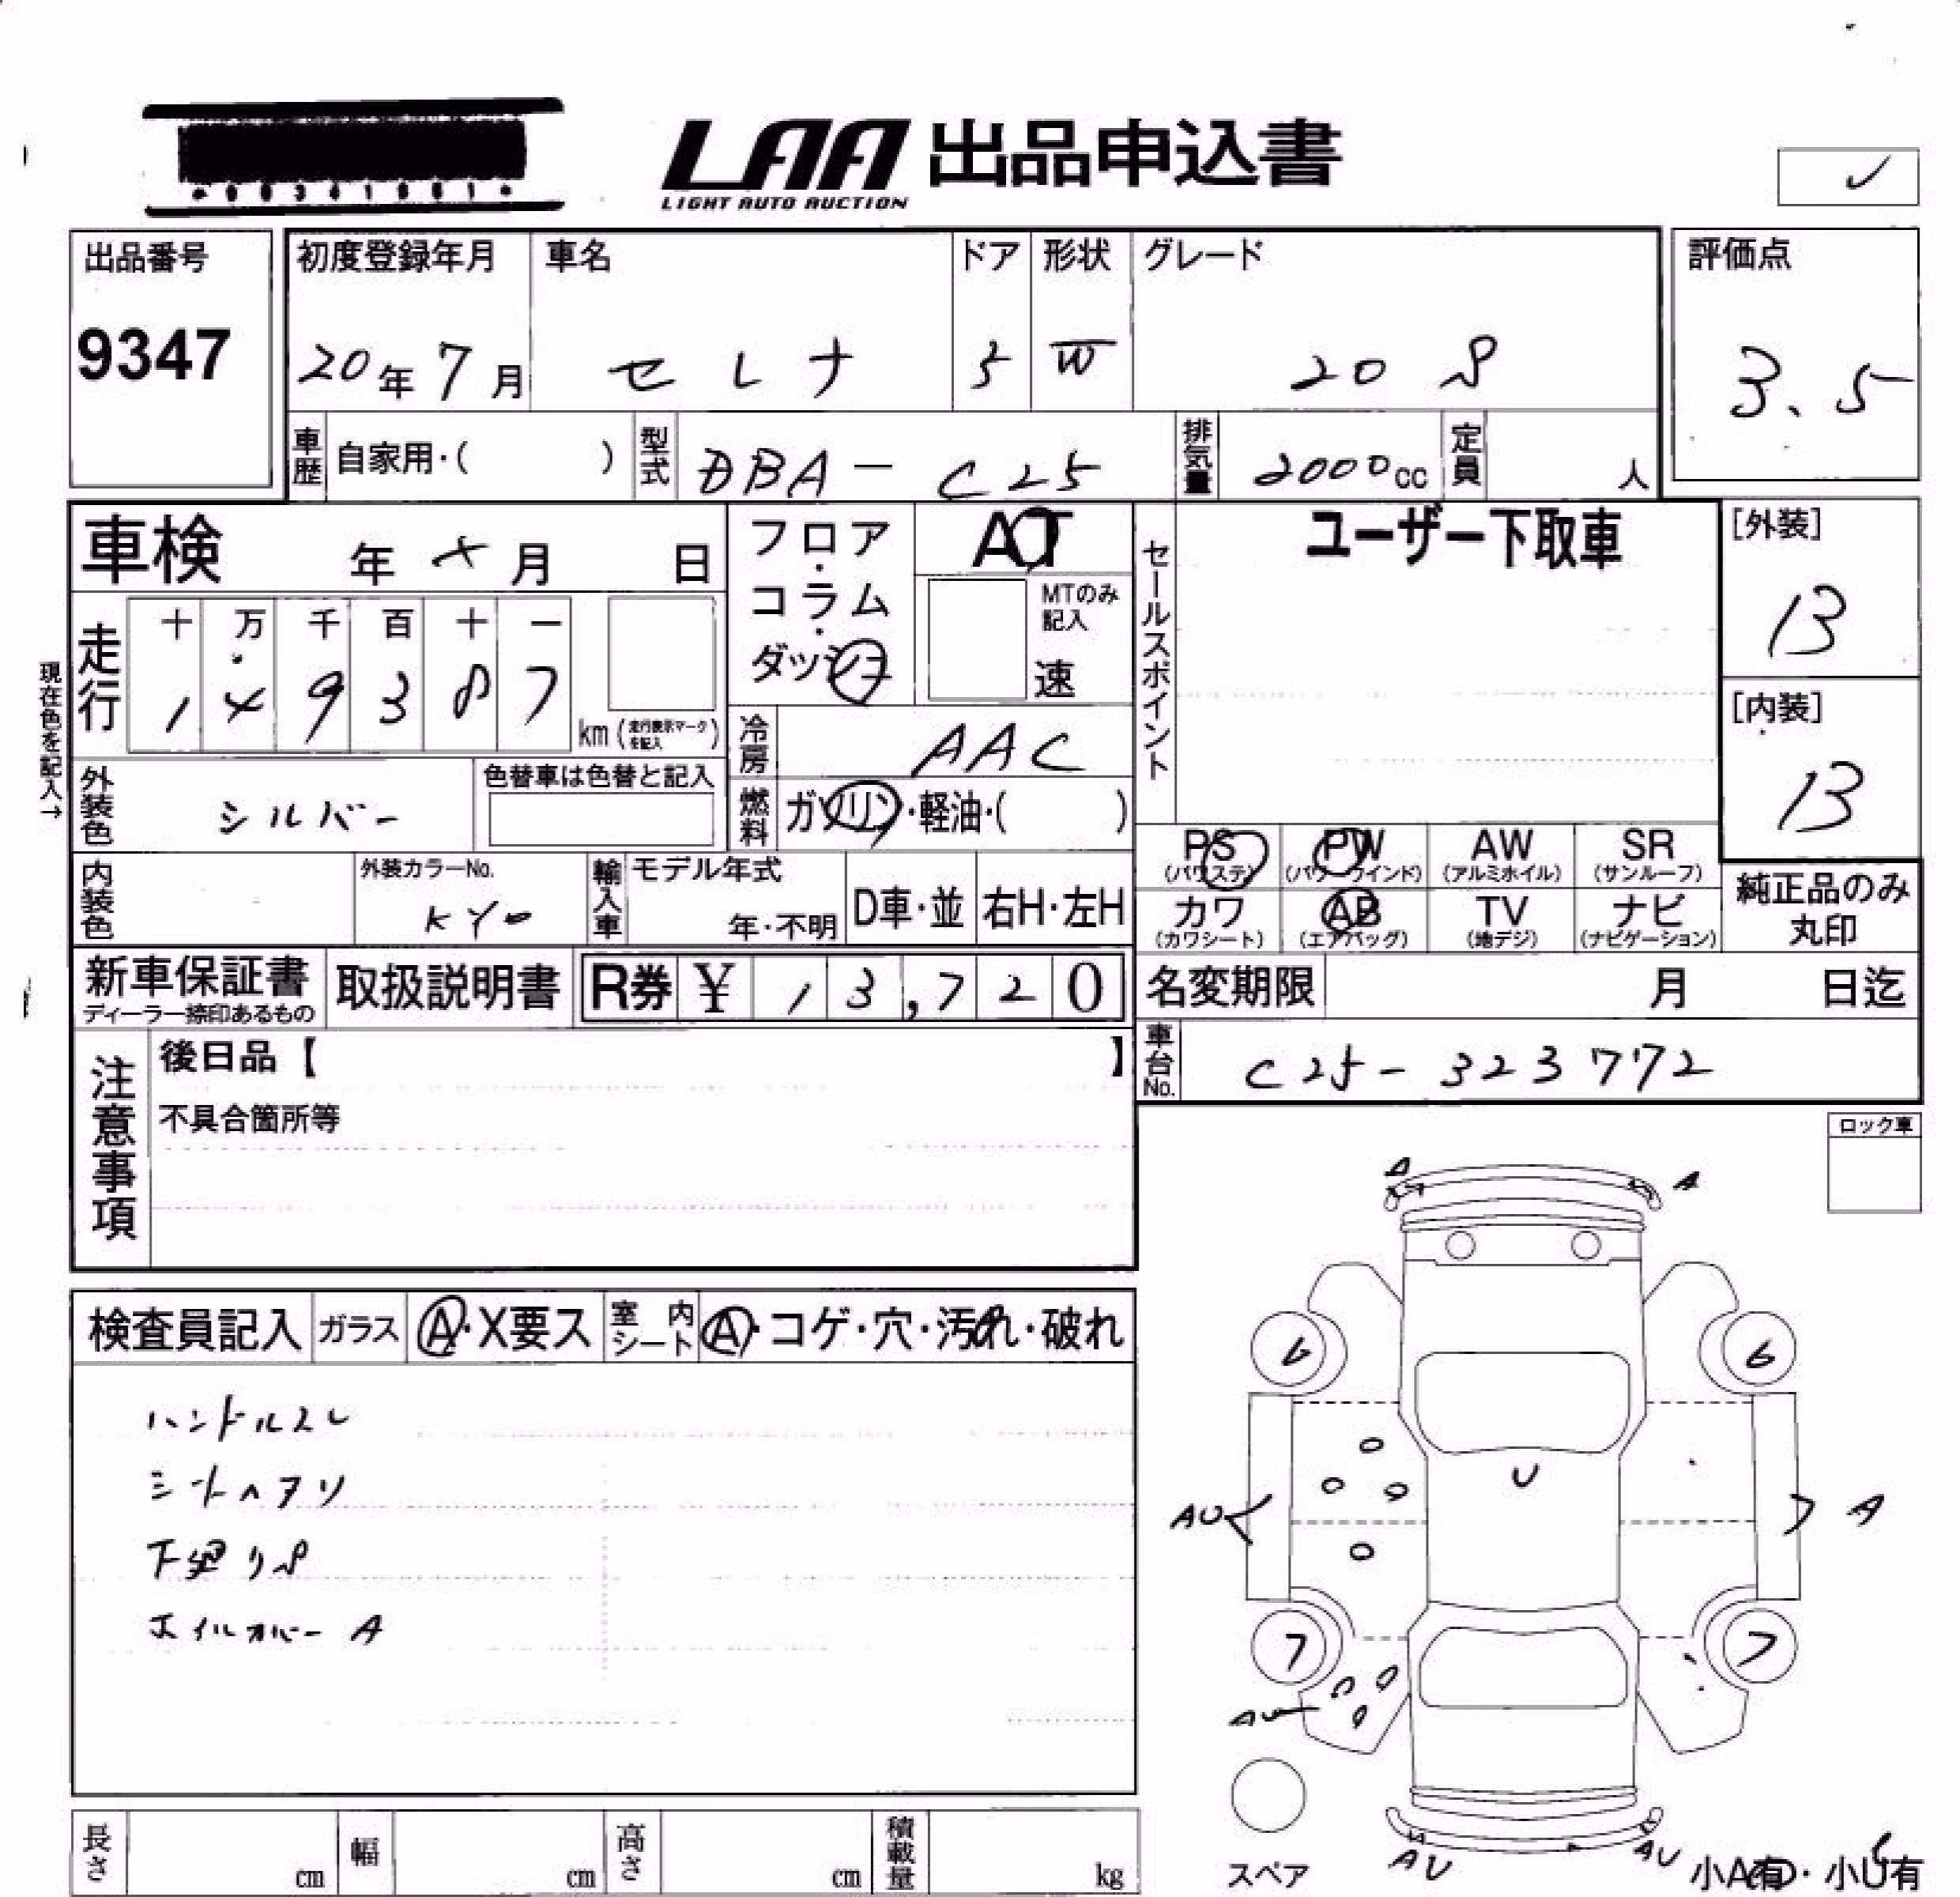 LAA 出品申込書
LIGHT AUTO AUCTION
出品番号
9347
初度登録年月
20年7月
車名
セレナ
ドア
5
形状
W
グレード
20S
評価点
3.5
車歴
自家用・( )
型式
DBA-C25
排気量
2000cc
定員
人
車検
年 月 日
フロア・コラム・ダッシュ
AT
MTのみ記入
速
セールスポイント
ユーザー下取車
[外装]
13
[内装]
13
現在色を記入→
走行
十 万 千 百 十 一
1 4 9 3 8 7
km (走行表示マークを記入)
冷房
AAC
外装色
シルバー
色替車は色替と記入
燃料
ガソリン・軽油・( )
PS
(パワステ)
PW
(パワーウインド)
AW
(アルミホイル)
SR
(サンルーフ)
カワ
(カワシート)
AB
(エアバッグ)
TV
(地デジ)
ナビ
(ナビゲーション)
純正品のみ
丸印
内装色
外装カラーNo.
KY0
輸入車
モデル年式
年・不明
D車・並
右H・左H
新車保証書
ディーラー捺印あるもの
取扱説明書
R券 ¥ 13,720
名変期限
月 日迄
車台No.
C25-323772
注意事項
後日品【 】
不具合箇所等
ロック車
検査員記入
ガラス
A・X要ス
室内シート
A・コゲ・穴・汚れ・破れ
ハンドルスレ
シートヘタリ
下廻りS
ホイルカバーA
A
A
6
6
U
AU
A
7
7
AU
AU
AU
スペア
小A有・小U有
長さ
cm
幅
cm
高さ
cm
積載量
kg